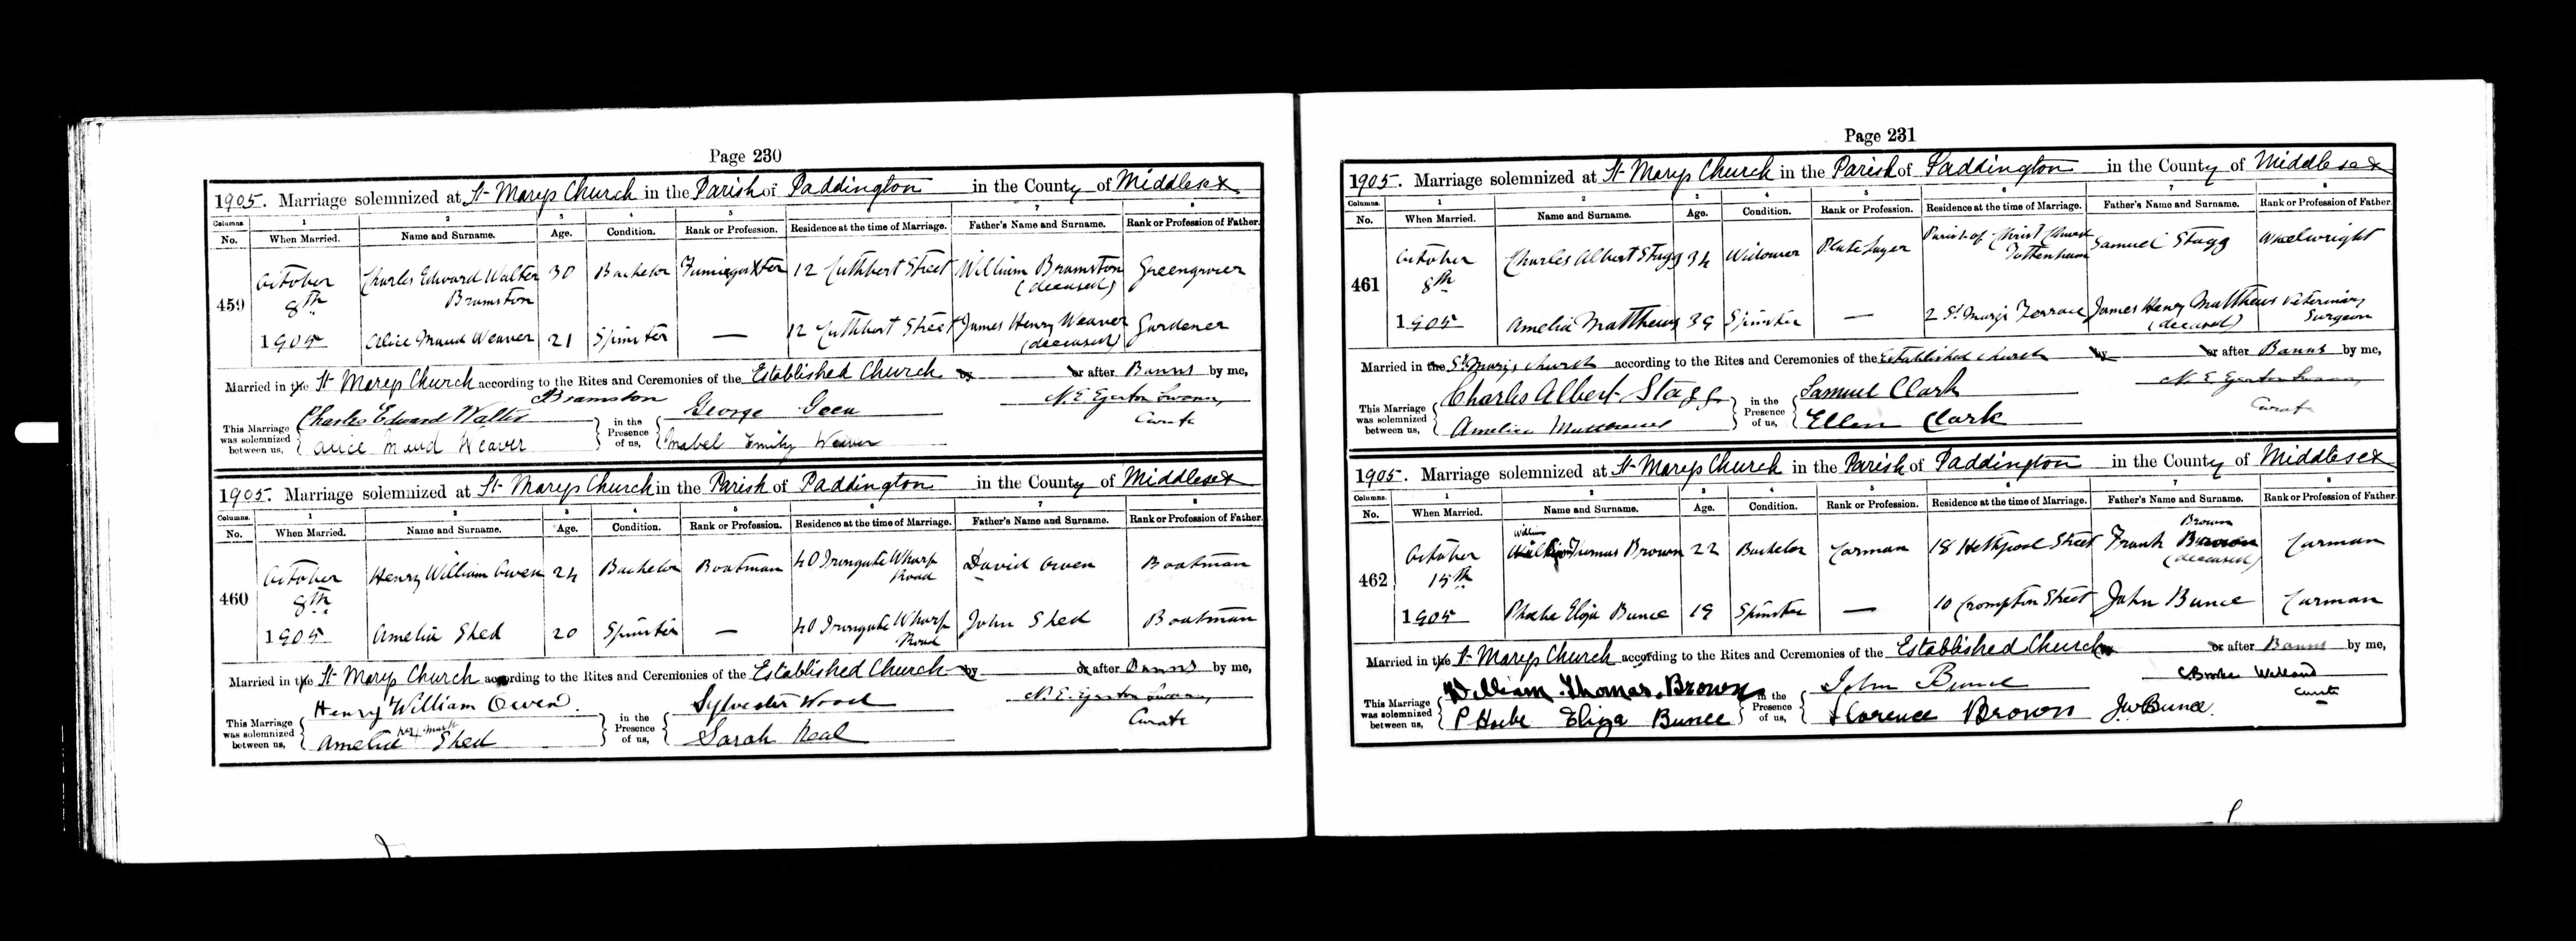 Page 230
1905. Marriage solemnized at St Marys Church in the Parish of Paddington in the County of Middlesex
Columns. 1 2 3 4 5 6 7 8
No. When Married. Name and Surname. Age. Condition. Rank or Profession. Residence at the time of Marriage. Father's Name and Surname. Rank or Profession of Father.
459 October 8th 1905
Charles Edward Walter Bramston 30 Bachelor 12 Cuthbert Street William Bramston (deceased) Greengrocer
Alice Maud Weaver 21 Spinster — 12 Cuthbert Street James Henry Weaver (deceased) Gardener
Married in the St Marys Church according to the Rites and Ceremonies of the Established Church by or after Banns by me,
This Marriage was solemnized between us, Charles Edward Walter Bramston in the Presence of us, George Geen N. E. Egerton Swann,
Alice Maud Weaver Mabel Emily Weaver Curate
1905. Marriage solemnized at St Marys Church in the Parish of Paddington in the County of Middlesex
Columns. 1 2 3 4 5 6 7 8
No. When Married. Name and Surname. Age. Condition. Rank or Profession. Residence at the time of Marriage. Father's Name and Surname. Rank or Profession of Father.
460 October 8th 1905
Henry William Owen 24 Bachelor Boatman 40 Irongate Wharf Road David Owen Boatman
Amelia Shed 20 Spinster — 40 Irongate Wharf Road John Shed Boatman
Married in the St Marys Church according to the Rites and Ceremonies of the Established Church by or after Banns by me,
This Marriage was solemnized between us, Henry William Owen. in the Presence of us, Sylvester Wood N. E. Egerton Swann,
Amelia her mark Shed Sarah Neal Curate
Page 231
1905. Marriage solemnized at St Marys Church in the Parish of Paddington in the County of Middlesex
Columns. 1 2 3 4 5 6 7 8
No. When Married. Name and Surname. Age. Condition. Rank or Profession. Residence at the time of Marriage. Father's Name and Surname. Rank or Profession of Father.
461 October 8th 1905
Charles Albert Stagg 34 Widower Plate Layer Parish of Christ Church Tottenham Samuel Stagg Wheelwright
Amelia Matthews 39 Spinster — 2 St Marys Terrace James Henry Matthews (deceased) Veterinary Surgeon
Married in the St Marys Church according to the Rites and Ceremonies of the Established Church by or after Banns by me,
This Marriage was solemnized between us, Charles Albert Stagg in the Presence of us, Samuel Clark N. E. Egerton Swann,
Amelia Matthews Ellen Clark Curate
1905. Marriage solemnized at St Marys Church in the Parish of Paddington in the County of Middlesex
Columns. 1 2 3 4 5 6 7 8
No. When Married. Name and Surname. Age. Condition. Rank or Profession. Residence at the time of Marriage. Father's Name and Surname. Rank or Profession of Father.
462 October 15th 1905
William Thomas Brown 22 Bachelor Carman 18 Hethpool Street Frank Brown (deceased) Carman
Phoebe Eliza Bunce 19 Spinster — 10 Crompton Street John Bunce Carman
Married in the St Marys Church according to the Rites and Ceremonies of the Established Church or after Banns by me,
This Marriage was solemnized between us, William Thomas Brown in the Presence of us, John Bunce
Phoebe Eliza Bunce Florence Brown J W Bunce. Curate